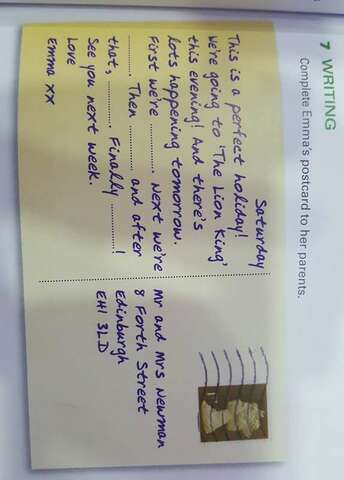 7 WRITING
Complete Emma's postcard to her parents.
Saturday
This is a perfect holiday!
We're going to 'The Lion King'
this evening! And there's
lots happening tomorrow.
First we're .......... Next we're
.......... Then .......... and after
that, .......... Finally ..........!
See you next week.
Love
Emma xx
Mr and Mrs Newman
8 Forth Street
Edinburgh
EH1 3LD